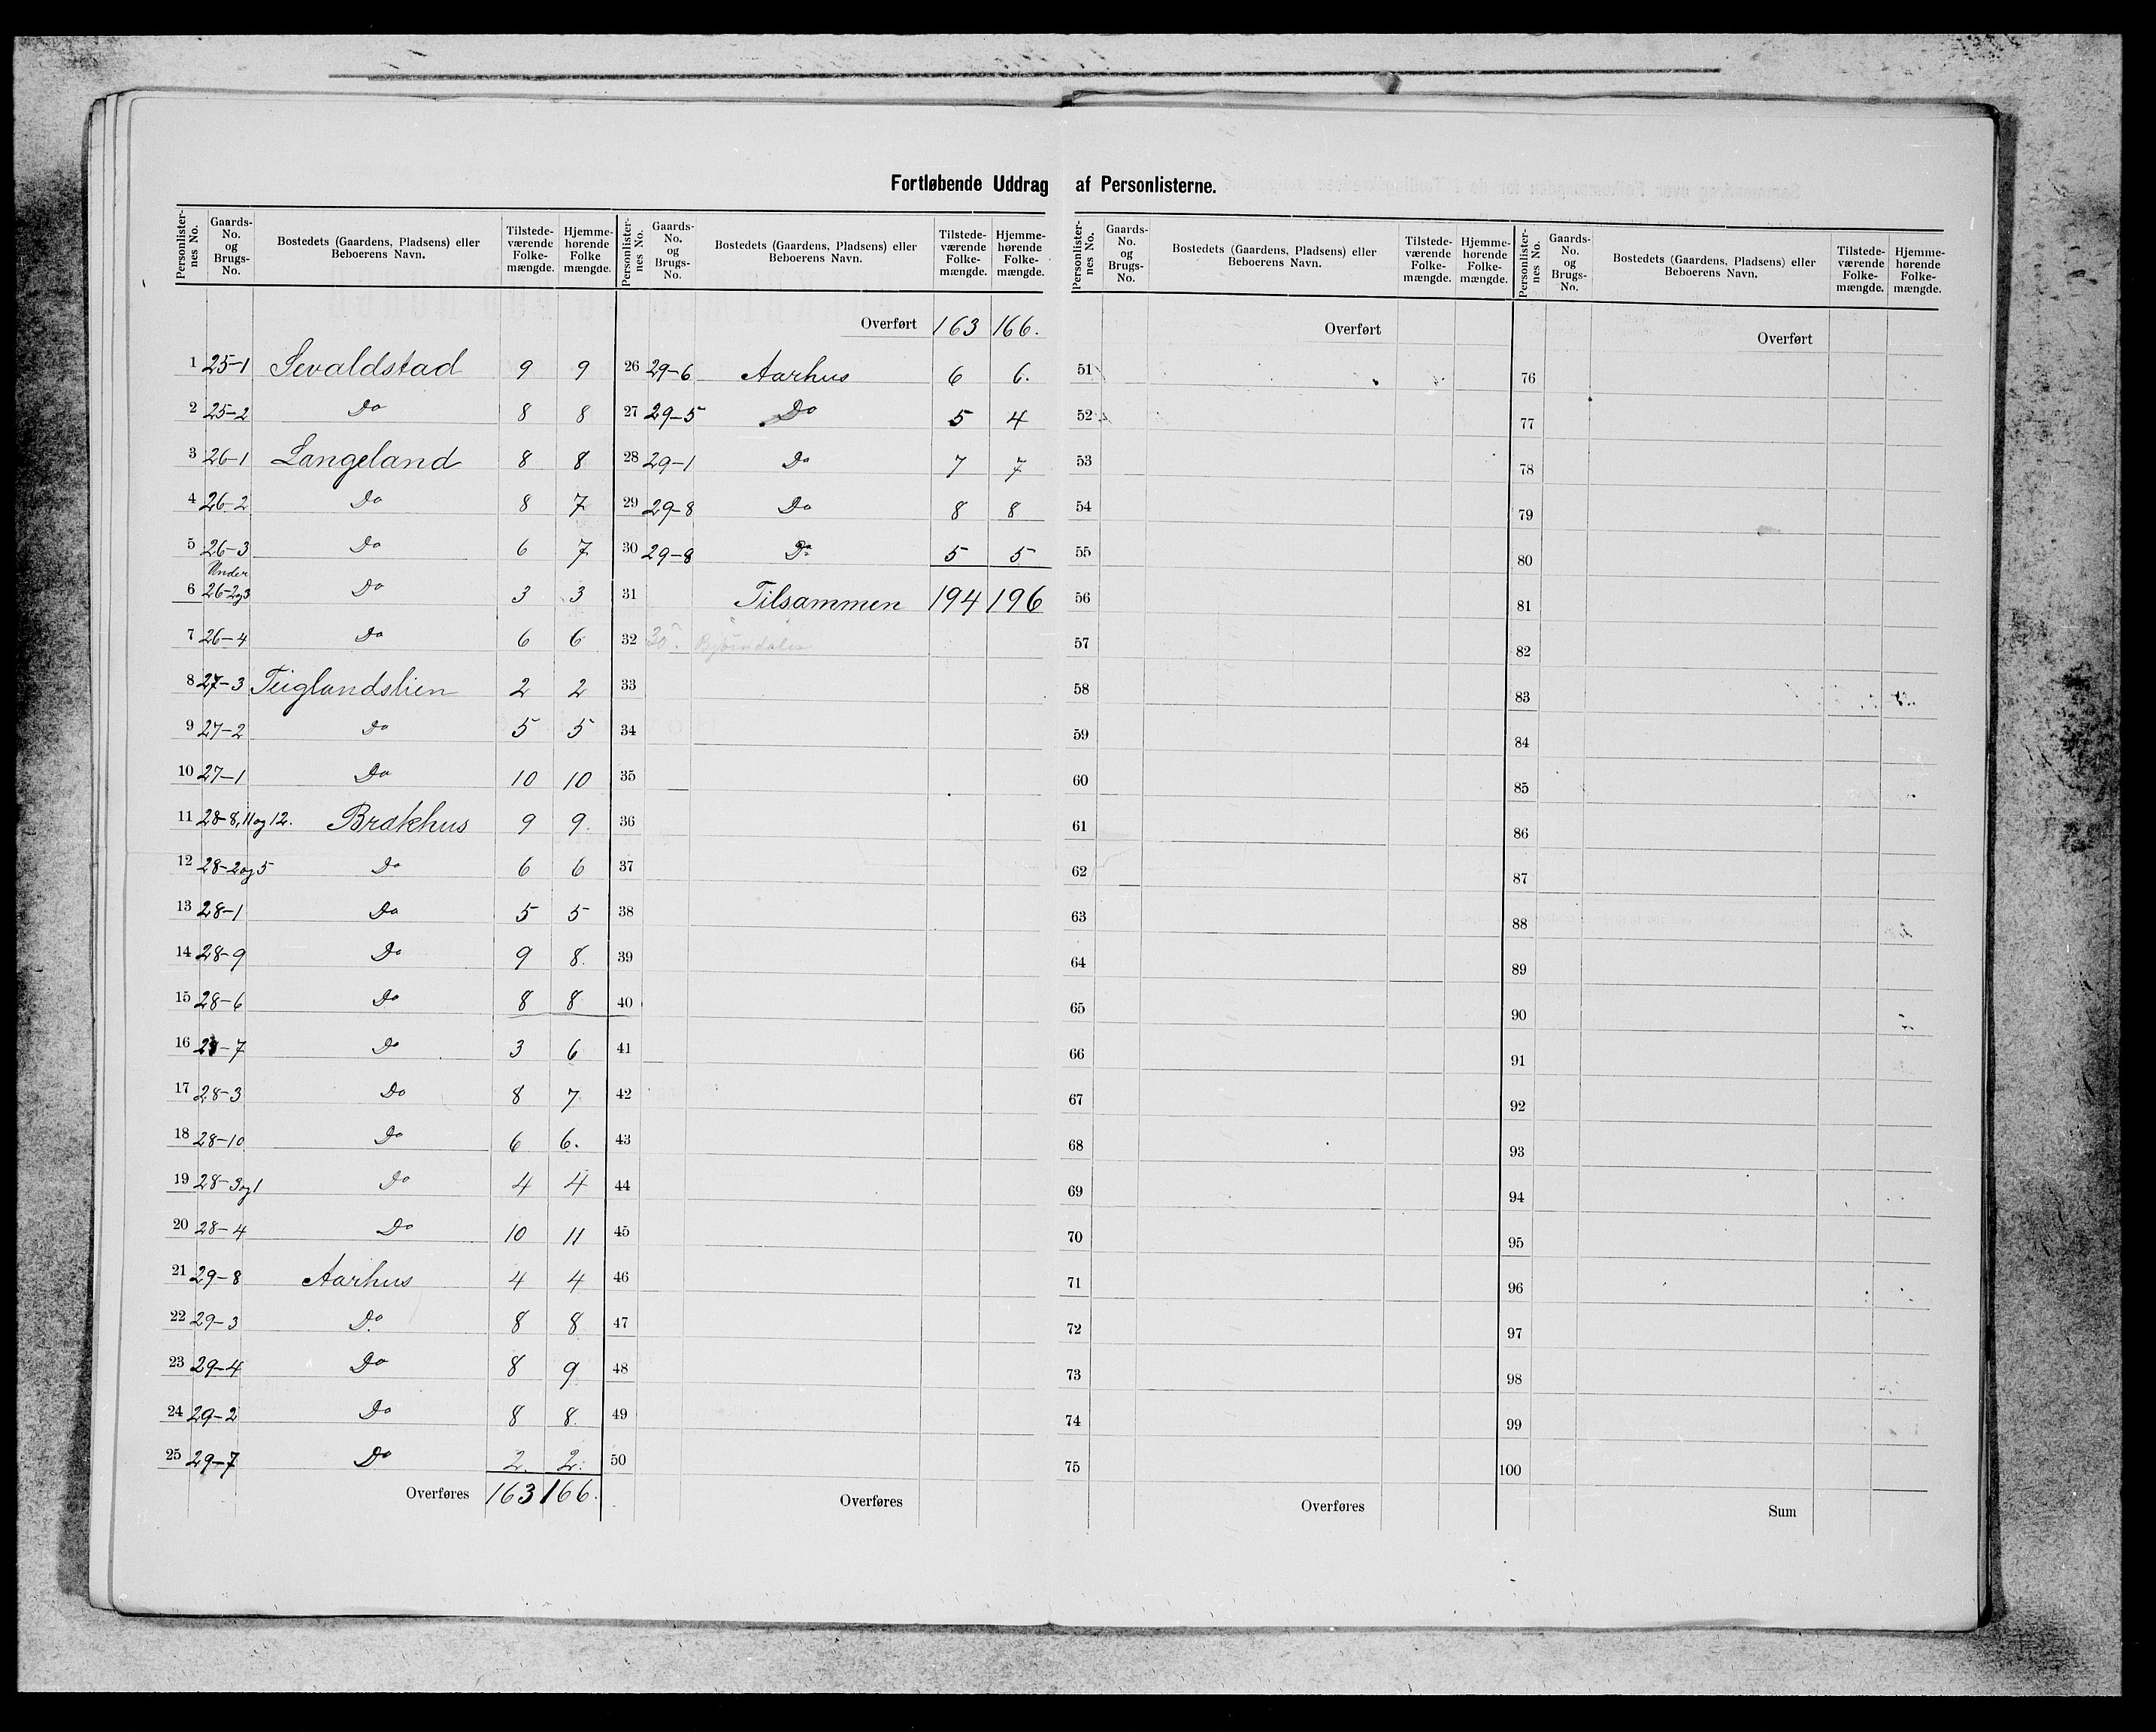 Fortløbende Uddrag af Personlisterne.
Personlister-nes No. Gaards-No. og Brugs-No. Bostedets (Gaardens, Pladsens) eller Beboerens Navn. Tilstede-værende Folke-mængde. Hjemme-hørende Folke mængde.
1 25-1 Sevaldstad 9 9
2 25-2 Do 8 8
3 26-1 Langeland 8 8
4 26-2 Do 8 7
5 26-3 Do 6 7
Under
6 26-2og3 Do 3 3
7 26-4 Do 6 6
8 27-3 Teiglandslien 2 2
9 27-2 Do 5 5
10 27-1 Do 10 10
11 28-8,11og12. Brakhus 9 9.
12 28-2og5 Do 6 6
13 28-1 Do 5 5
14 28-9 Do 9 8.
15 28-6 Do 8 8
16 28-7 Do 3 6
17 28-3 Do 8 7
18 28-10 Do 6 6.
19 28-3og1 Do 4 4
20 28-4 Do 10 11
21 29-8 Aarhus 4 4
22 29-3 Do 8 8
23 29-4 Do 8 9
24 29-2 Do 8 8.
25 29-7 Do 2. 2.
Overføres 163 166.
Personlister-nes No. Gaards-No. og Brugs-No. Bostedets (Gaardens, Pladsens) eller Beboerens Navn. Tilstede-værende Folke-mængde. Hjemme-hørende Folke-mængde.
Overført 163 166.
26 29-6 Aarhus 6 6.
27 29-5 Do 5 4
28 29-1 Do 7 7
29 29-8 Do 8 8
30 29-8 Do 5 5
31 Tilsammen 194 196
32 30.
33
34
35
36
37
38
39
40
41
42
43
44
45
46
47
48
49
50
Overføres
Personlister-nes No. Gaards-No. og Brugs-No. Bostedets (Gaardens, Pladsens) eller Beboerens Navn. Tilstede-værende Folke-mængde. Hjemme-hørende Folke-mængde.
Overført
51
52
53
54
55
56
57
58
59
60
61
62
63
64
65
66
67
68
69
70
71
72
73
74
75
Overføres
Personlister-nes No. Gaards-No. og Brugs-No. Bostedets (Gaardens, Pladsens) eller Beboerens Navn. Tilstede-værende Folke-mængde. Hjemme-hørende Folke-mængde.
Overført
76
77
78
79
80
81
82
83
84
85
86
87
88
89
90
91
92
93
94
95
96
97
98
99
100
Sum